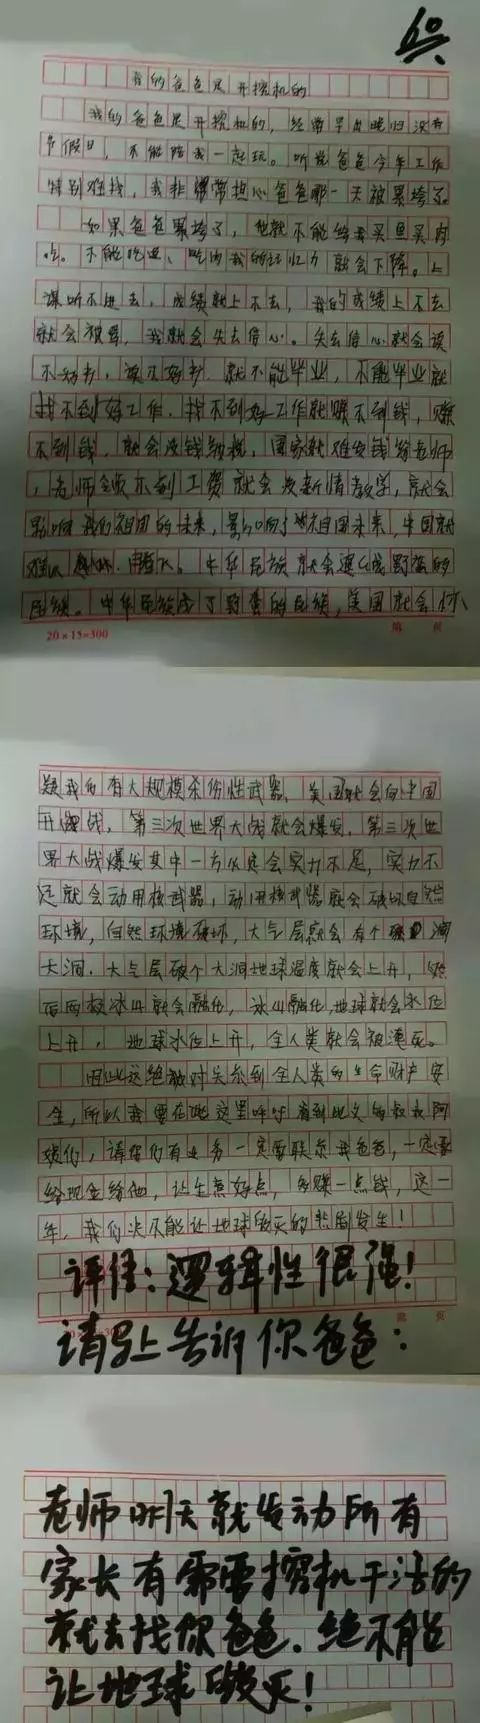 60
我的爸爸是开挖机的
我的爸爸是开挖机的，经常早出晚归没有
节假日，不能陪我一起玩。听说爸爸今年工作
特别难找，我非常担心爸爸哪一天被累垮了。
如果爸爸累垮了，他就不能给我买鱼买肉
吃。不能吃鱼、吃肉我的记忆力就会下降。上
课听不进去，成绩就上不去，我的成绩上不去
就会被骂，我就会失去信心。失去信心就会读
不好书，读不好书，就不能毕业，不能毕业就
找不到好工作，找不到好工作就赚不到钱，赚
不到钱，就会没钱纳税，国家就难发钱给老师
，老师领不到工资就会没新情教学，就会
影响我们祖国的未来，影响了祖国未来，中国就
难以腾飞。中华民族就会退化成野蛮的
民族。中华民族成了野蛮的民族，美国就会怀
20×15=300 第 页
疑我们有大规模杀伤性武器，美国就会向中国
开战，第三次世界大战就会爆发，第三次世
界大战爆发其中一方必定会实力不足，实力不
足就会动用核武器，动用核武器就会破坏自然
环境，自然环境破坏，大气层就会有个
大洞，大气层破个大洞地球温度就会上升，然
后两极冰山就会融化，冰山融化，地球就会水位
上升，地球水位上升，全人类就会被淹死。
因此这绝对关系到全人类的生命财产安
全，所以我要在这里呼吁看到此文的叔叔阿
姨们，请你们有业务一定要联系我爸爸，一定要
给现金给他，让生意好点，多赚一点钱，这一
年，我们决不能让地球毁灭的悲剧发生！
评佳：逻辑性很强！
请马上告诉你爸爸：
老师昨天就发动所有
家长有需要挖机干活的
就去找你爸爸．绝不能
让地球毁灭！